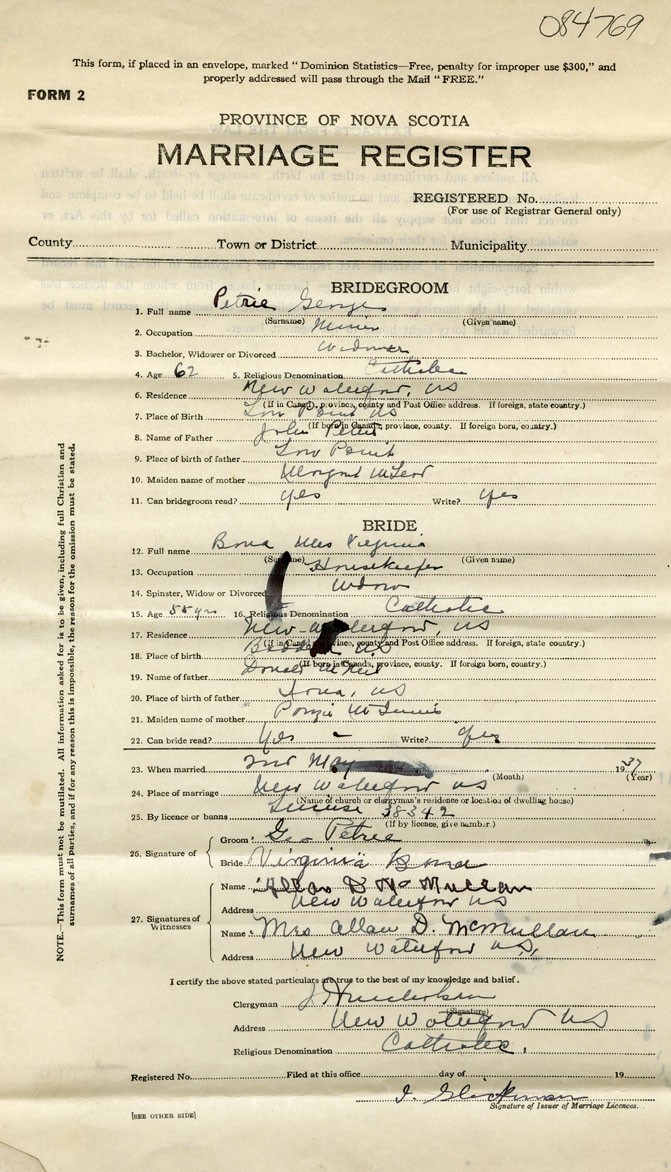 084769
This form, if placed in an envelope, marked " Dominion Statistics—Free, penalty for improper use $300," and
properly addressed will pass through the Mail " FREE."
FORM 2
PROVINCE OF NOVA SCOTIA
MARRIAGE REGISTER
REGISTERED No.
(For use of Registrar General only)
County Town or District Municipality
BRIDEGROOM
1. Full name Petrie George
(Surname) (Given name)
2. Occupation Miner
3. Bachelor, Widower or Divorced Widower
4. Age 62 5. Religious Denomination Catholic
6. Residence New Waterford, NS
(If in Canada, province, county and Post Office address. If foreign, state country.)
7. Place of Birth Low Point NS
(If born in Canada, province, county. If foreign born, country.)
8. Name of Father John Petrie
9. Place of birth of father Low Point
10. Maiden name of mother Margret McLeod
11. Can bridegroom read? yes Write? yes
BRIDE
12. Full name Bona Mrs Virginia
(Surname) (Given name)
13. Occupation Housekeeper
14. Spinster, Widow or Divorced Widow
15. Age 55 yrs 16. Religious Denomination Catholic
17. Residence New Waterford, NS
(If in Canada, province, county and Post Office address. If foreign, state country.)
18. Place of birth NS
(If born in Canada, province, county. If foreign born, country.)
19. Name of father Donald McNeil
20. Place of birth of father Iona, NS
21. Maiden name of mother
22. Can bride read? Yes - Write? yes
23. When married 2nd May 1937
(Month) (Year)
24. Place of marriage New Waterford NS
(Name of church or clergyman's residence or location of dwelling house)
25. By licence or banns License 38342
(If by licence, give number.)
26. Signature of
Groom Geo Petrie
Bride Virginia Bona
27. Signatures of Witnesses
Name Allan D McMullan
Address New Waterford NS
Name Mrs Allan D. McMullan
Address New Waterford NS,
I certify the above stated particulars are true to the best of my knowledge and belief.
Clergyman
(Signature)
Address New Waterford NS
Religious Denomination Catholic.
Registered No. Filed at this office day of 19
Signature of Issuer of Marriage Licences.
[SEE OTHER SIDE]
NOTE.—This form must not be mutilated. All information asked for is to be given, including full Christian and
surnames of all parties, and if for any reason this is impossible, the reason for the omission must be stated.